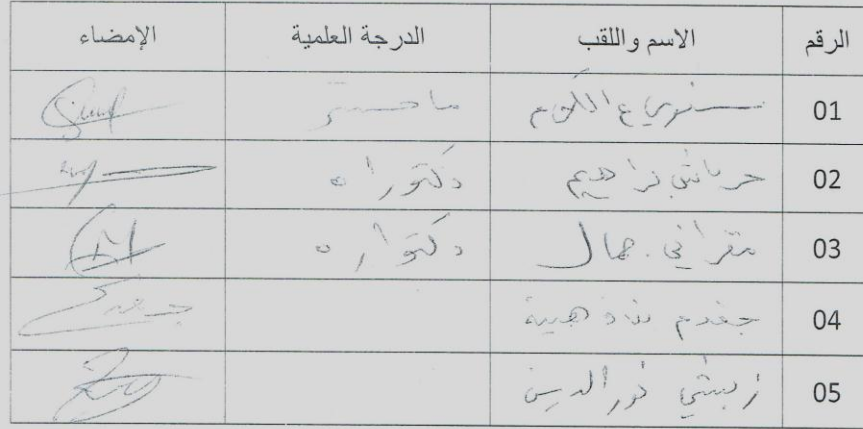 الرقم الاسم واللقب الدرجة العلمية الإمضاء
01 سنوسي ع الكريم ماجستير
02 براهيم دكتوراه
03 مقراني جمال دكتوراه
04 جغدم بن ذهيبة
05 زبشي نور الدين